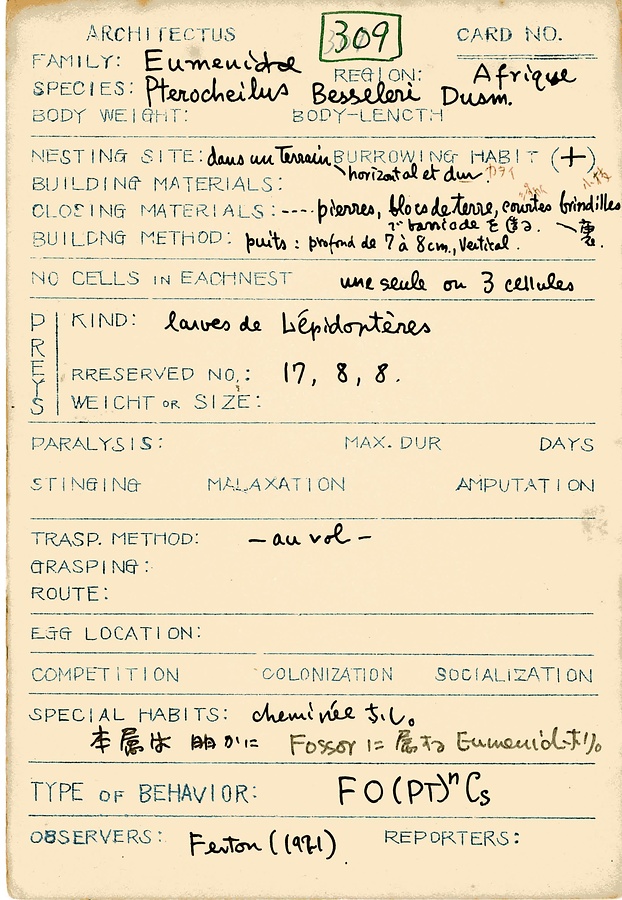 309
ARCHITECTUS CARD NO.
FAMILY: Eumenidae
REGION: Afrique
SPECIES: Pterocheilus Besseleri Dusm.
BODY WEIGHT: BODY-LENGTH
NESTING SITE: dans un Terrain BURROWING HABIT (+)
horizontal et dur カタイ
BUILDING MATERIALS:
CLOSING MATERIALS: ---- pierres, blocs de terre, courtes brindilles
で barricade を
BUILDNG METHOD: puits : profond de 7 à 8 cm., Vertical.
NO CELLS IN EACHNEST une seule ou 3 cellules
PREYS
KIND: larves de Lépidoptères
RRESERVED NO.: 17, 8, 8.
WEIGHT OR SIZE:
PARALYSIS: MAX. DUR DAYS
STINGING MALAXATION AMPUTATION
TRASP. METHOD: – au vol –
GRASPING:
ROUTE:
EGG LOCATION:
COMPETITION COLONIZATION SOCIALIZATION
SPECIAL HABITS: cheminée ナシ。
本属は 明かに Fossor に 属する Eumenid ナリ。
TYPE OF BEHAVIOR: FO(PT)ⁿCs
OBSERVERS: Ferton (1921) REPORTERS: